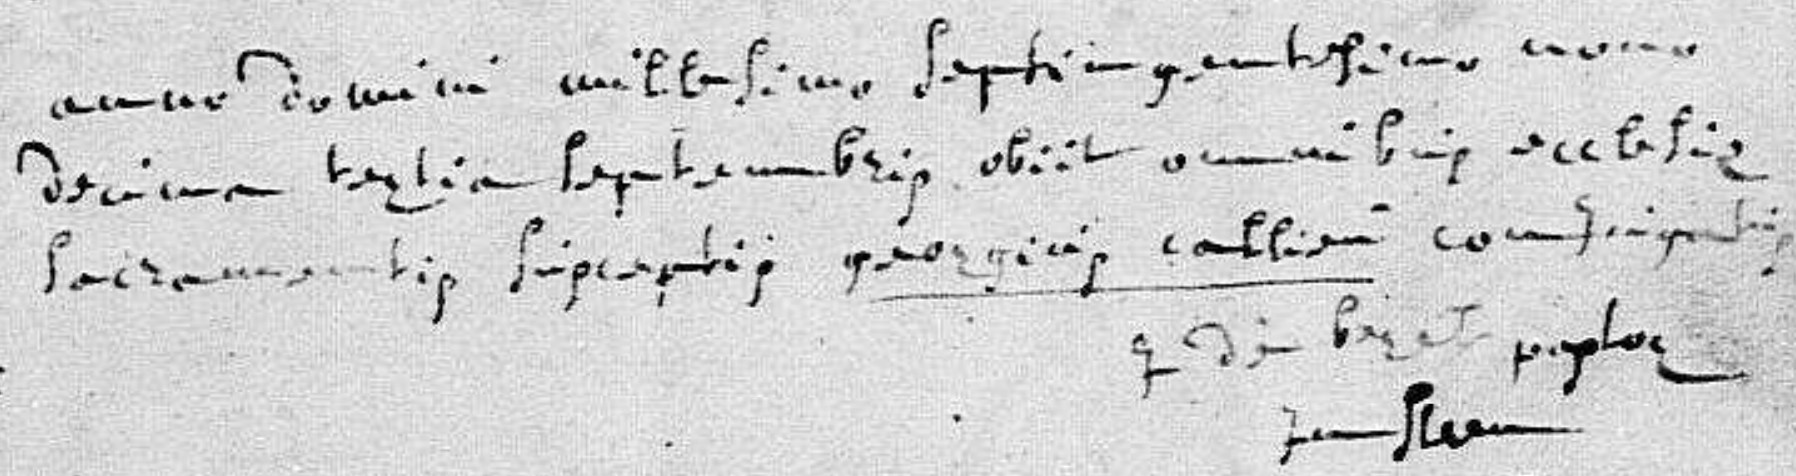 anno domini millesimo septingentesimo nono
decima tertia septembris obiit omnibus ecclesiæ
sacramentis susceptis georgius callieu
pastor